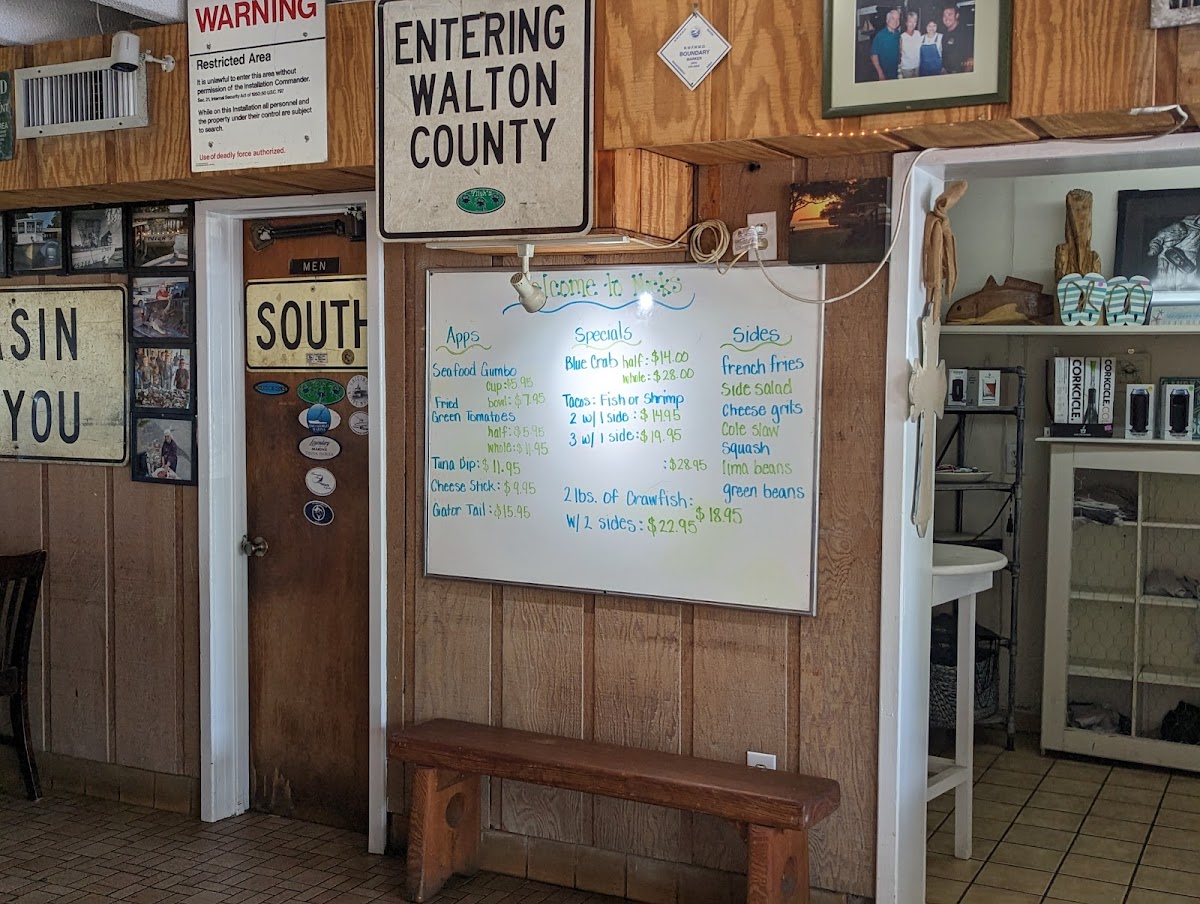 WARNING
Restricted Area
It is unlawful to enter this area without
permission of the Installation Commander.
While on this Installation all personnel and
the property under their control are subject
to search.
Use of deadly force authorized.
ENTERING
WALTON
COUNTY
BOUNDARY
MEN
SOUTH
SIN
YOU
Welcome to Nick's
Apps
Seafood Gumbo
cup: $5.95
bowl: $7.95
Fried
Green Tomatoes
half: $5.95
whole: $11.95
Tuna Dip: $11.95
Cheese Stick: $9.95
Gator Tail: $15.95
Specials
Blue Crab half: $14.00
whole: $28.00
Tacos: Fish or Shrimp
2 w/ 1 side: $14.95
3 w/ 1 side: $19.95
: $28.95
2 lbs. of Crawfish:
$18.95
w/ 2 sides: $22.95
Sides
french fries
Side salad
Cheese grits
Cole slaw
Squash
lima beans
green beans
CORKCICLE
CORKCICLE